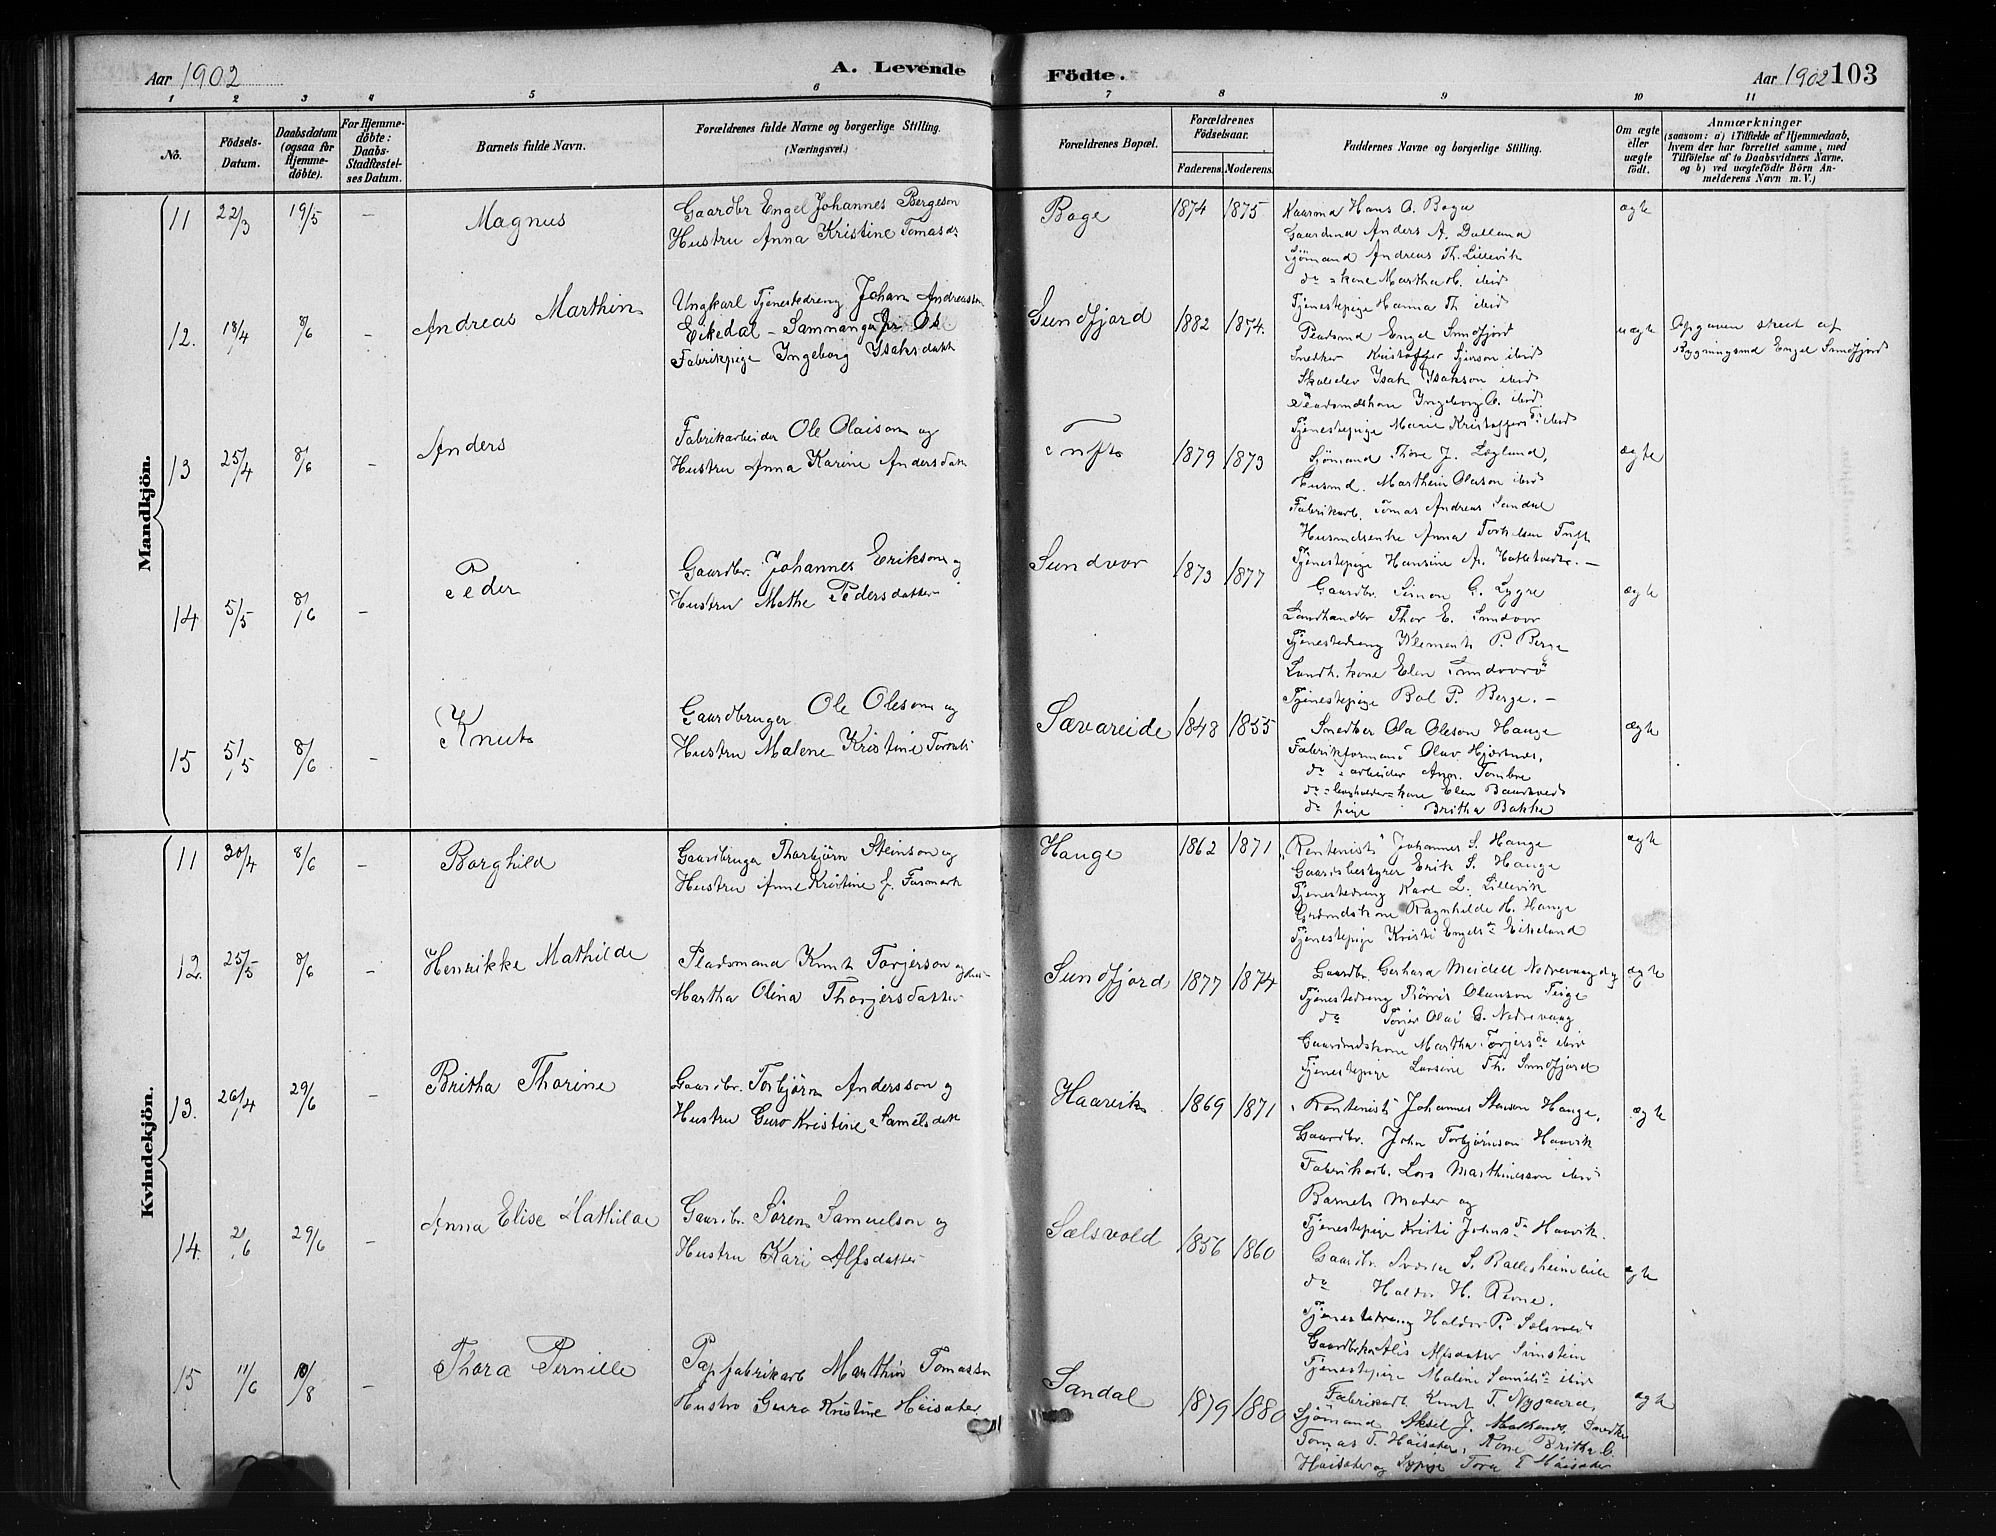 Aar 1902
A. Levende
Födte.
Aar 1902
103
1 2 3 4 5 6 7 8 9 10 11
No.
Födsels-
Datum.
Daabsdatum
(ogsaa for
Hjemme-
döbte).
For Hjemme-
döbte:
Daabs-
Stadfæstel-
ses Datum.
Barnets fulde Navn.
Forældrenes fulde Navne og borgerlige Stilling.
(Næringsvei.)
Forældrenes Bopæl.
Forældrenes
Födselsaar.
Faderens. Moderens.
Faddernes Navne og borgerlige Stilling.
Om ægte
eller
uægte
födt.
Anmærkninger
(saasom: a) i Tilfælde af Hjemmedaab,
hvem der har forrettet samme, med
Tilföielse af to Daabsvidners Navne,
og b) ved uægtefödte Börn An-
melderens Navn m. V.)
Mandkjön.
11 22/3 19/5 – Magnus
Gaardbr Engel Johannes Bergeson
Hustru Anna Kristine Tomasdr
Bage 1874 1875
Kaarmd Hans O. Bage
Gaardmd Anders A. Dalland
Sjømand Andreas Th. Lillevik
do kone Martha H. ibid
Tjenestepige Hanna Th ibid
ægte
12. 18/4 8/6 – Andreas Marthin
Ungkarl Tjenestedreng Johan Andreasson
Eikedal – Samnanger Os
Fabrikpige Ingeborg Isaksdatt
Sundfjord 1882 1874.
Pladsmd Engel Sundfjord
Snedker Kristoffer ibid
Skoleelev Isak Isakson ibid
Pladsmdskone Ingeborg O. ibid
Tjenestepige Marie Kristoffersdr ibid
uægte
Opgaven skeet af
Bygningsmd Engel Sundfjord
13 25/4 8/6 – Anders
Fabrikarbeider Ole Olaison og
Hustru Anna Karine Andersdatt
Tufte 1879 1873
Sjømand Thore J. Lægland,
Husmd. Marthein Olason ibid
Fabrikarb. Tomas Andreas Sandal
Husmdsenke Anna Torkelsen Tuft
Tjenestepige Hansine A. –
ægte
14 5/5 8/6 – Peder
Gaardbr. Johannes Erikson og
Hustru Mathe Pedersdatter
Sundvor 1873 1877
Gaardbr. Simon G. Lygre
Landhandler Thor E. Sundvor
Tjenestedreng Klement P. Berge
Landh. kone Elen Sundvor
Tjenestepige Bol P. Berge. –
ægte
15 5/5 8/6 – Knut
Gaardbruger Ole Oleson og
Hustru Malene Kristine
Sævareide 1848 1855
Snedker Ola Oleson Hauge
Fabrikformand Olav Hjartnes,
do arbeider Tombre
do kone Elen
do pige Britha Bakke
ægte
Kvindekjön.
11 30/4 8/6 – Borghild
Gaardbruger Thorbjörn Steinson og
Hustru Anne Kristine f. Fusmark
Hauge 1862 1871
"Rentenist" Johannes S. Hauge
Gaardsbestyrer Erik S. Hauge
Tjenestedreng Karl L. Lillevik
Grdmdskone Ragnhilde H. Hauge
Tjenestepige Kristi Engelsdr Eikeland
ægte
12. 25/5 8/6 – Henrikke Mathilde
Pladsmand Knut Torjerson og
Martha Olina Thorjersdatter
Sundfjord 1877 1874
Gaardbr. Gerhard Meidell Nedrevaag og
Tjenestedreng Olauson Teige
do Torjer Olai Nedrevaag
Gaardmdskone Martha Torjersdr ibid
Tjenestepige Lavine Th. Sundfjord
ægte
13. 26/4 29/6 – Britha Thorine
Gaardbr. Torbjørn Andersson og
Hustru Guro Kristine Samelsdatt
Haavik 1869 1871
"Rentenist" Johannes Stenson Hauge,
Gaardbr. John Torbjørnson Haavik
Fabrikarb. Lars Marthinusson ibid
Barnets Moder og
Tjenestepige Kristi Johnsdr Haavik.
ægte
14. 2/6 29/6 – Anna Elise Mathilde
Gaardbr. Søren Samuelson og
Hustru Kari Alfsdatter
Sælsvold 1856 1860
Gaardbr. Sverke S. Ballesheim
do Haldor H. Revne.
Tjenestedreng Haldor P. Sælsvold
Alfsdatter
Tjenestepige Maline ibid
ægte
15 11/6 10/8 – Thora Pernille
Papfabrikarb Marthin Tomasson
Hustro Guro Kristine Höisæter
Sandal 1879 1880
Fabrikarb Knut T. Nygaard,
Sjömand Aksel J. Snedker
Tomas T. Höisæter, Kone Britha G.
Höisæter og Tora T Höisæter
ægte